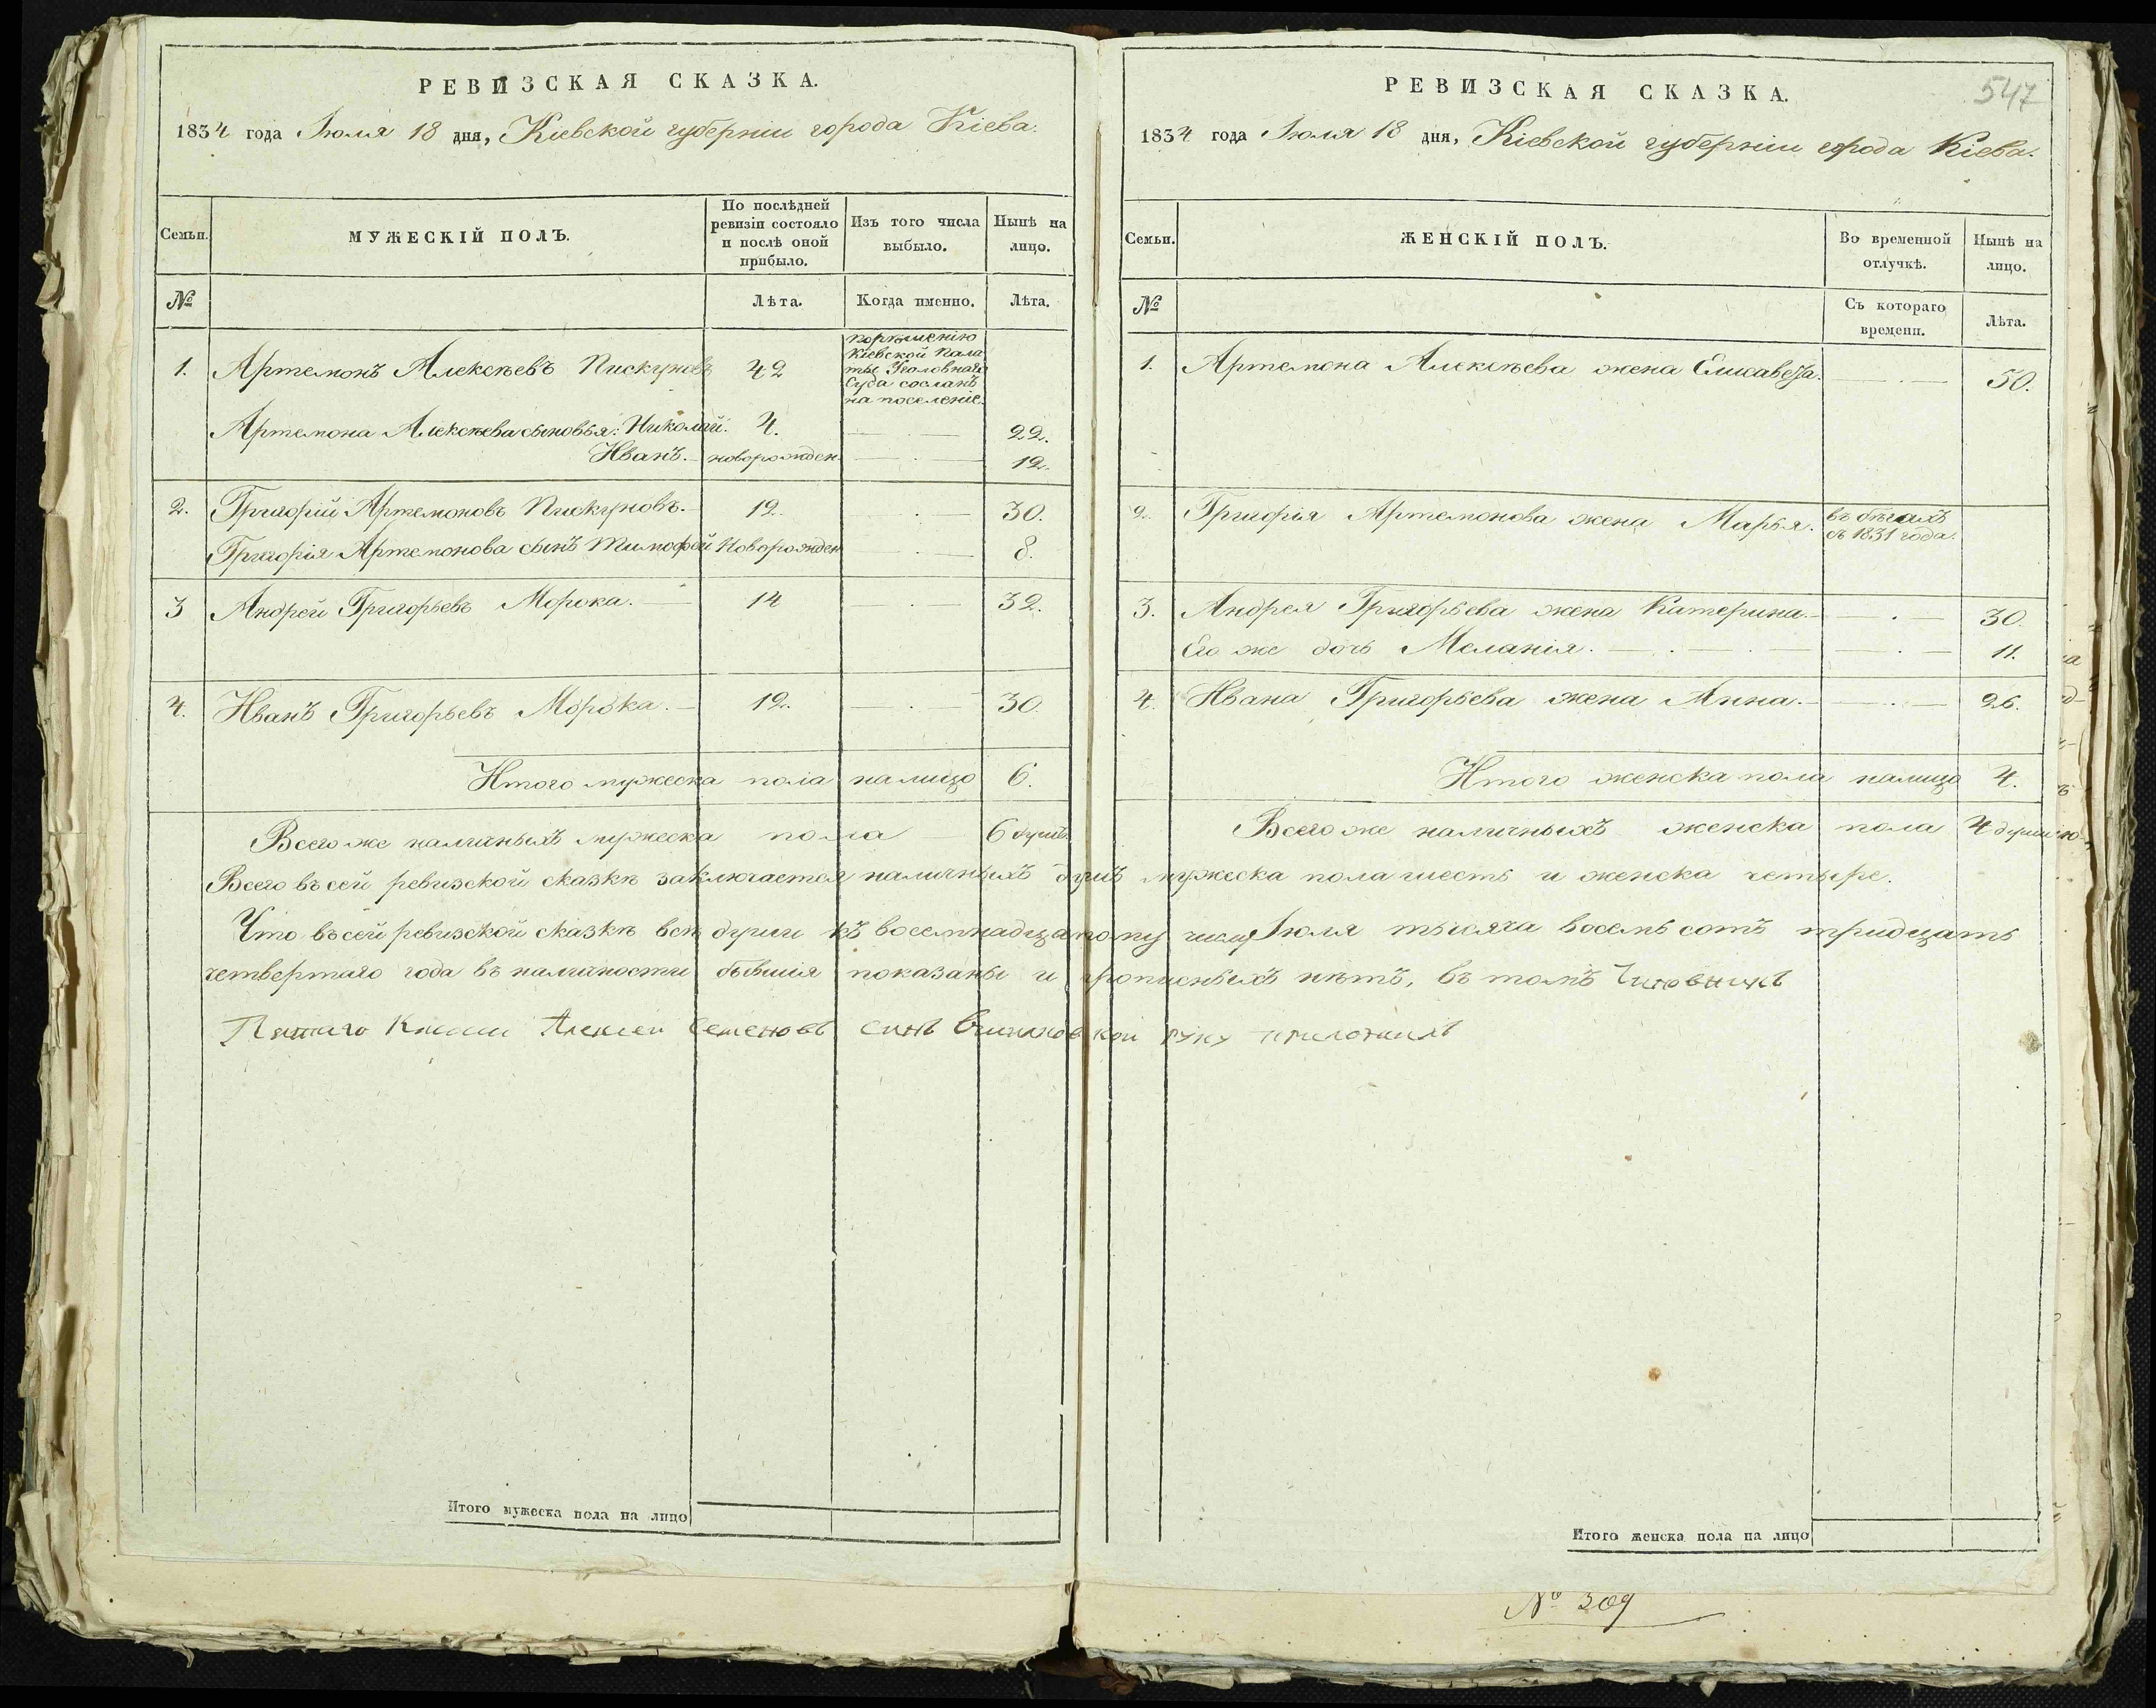 РЕВИЗСКАЯ СКАЗКА.
1834 года Іюля 18 дня, Кіевской губерніи города Кіева.
Семьи.
МУЖЕСКІЙ ПОЛЪ.
По послѣдней
ревизіи состояло
и послѣ оной
прибыло.
Изъ того числа
выбыло.
Нынѣ на
лицо.
№
Лѣта.
Когда именно.
Лѣта.
1. Артемонъ Алексѣевъ Пискуновъ 42
порѣшенію
Кіевской Пала
ты Уголовнаго
Суда сосланъ
на поселеніе.
Артемона Алексѣева сыновья: Николай. 4. 22.
Иванъ. новорожден. 12.
2. Григорій Артемоновъ Пискуновъ. 12. 30.
Григорія Артемонова сынъ Тимофей Новорожден 8.
3 Андрей Григорьевъ Морока. 14 32.
4. Иванъ Григорьевъ Морока. 12. 30.
Итого мужеска пола налицо 6.
Всего же наличныхъ мужеска пола 6 душъ.
547
РЕВИЗСКАЯ СКАЗКА.
1834 года Іюля 18 дня, Кіевской губерніи города Кіева.
Семьи.
ЖЕНСКІЙ ПОЛЪ.
Во временной
отлучкѣ.
Нынѣ на
лицо.
№
Съ котораго
времени.
Лѣта.
1. Артемона Алексѣева жена Елисавета. 50.
2. Григорія Артемонова жена Марья. въ бѣгахъ
съ 1831 года.
3. Андрея Григорьева жена Катерина. 30.
Его же дочь Меланія. 11.
4. Ивана Григорьева жена Анна. 26.
Итого женска пола налицо 4.
Всего же наличныхъ женска пола 4 души
Всего въ сей ревизской сказкѣ заключается наличныхъ душъ мужеска пола шесть и женска четыре.
Что въ сей ревизской сказкѣ всѣ души къ восемнадцатому числу Іюля тысяча восемь сотъ тридцать
четвертаго года въ наличности бывшія показаны и прописныхъ нѣтъ, въ томъ Чиновникъ
Пятаго Класи Алексеи Семеновъ синъ руку приложилъ
Итого мужеска пола на лицо
Итого женска пола на лицо
№ 309